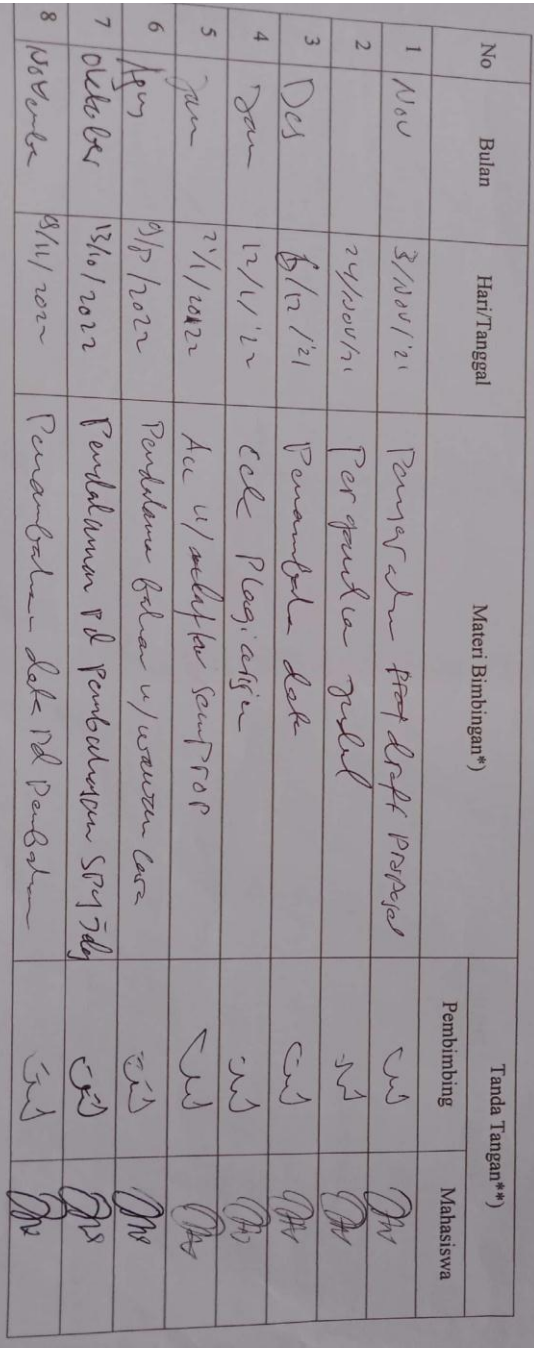 No Bulan Hari/Tanggal Materi Bimbingan*) Tanda Tangan**)
Pembimbing Mahasiswa
1 Nov 3/Nov/'21 draft
2 24/Nov/21
3 Des 6/12/'21 Penambaha data
4 Jan 12/1/'22 Cek Plagiasi
5 Jan 21/1/2022 Acc u/ semprop
6 Agus 9/8/2022 Pendalama bahan u/ wawancara
7 Oktober 13/10/2022 Pendalaman pd Pembahasan
8 November 8/11/2022 Penambahan data pd Pembahan